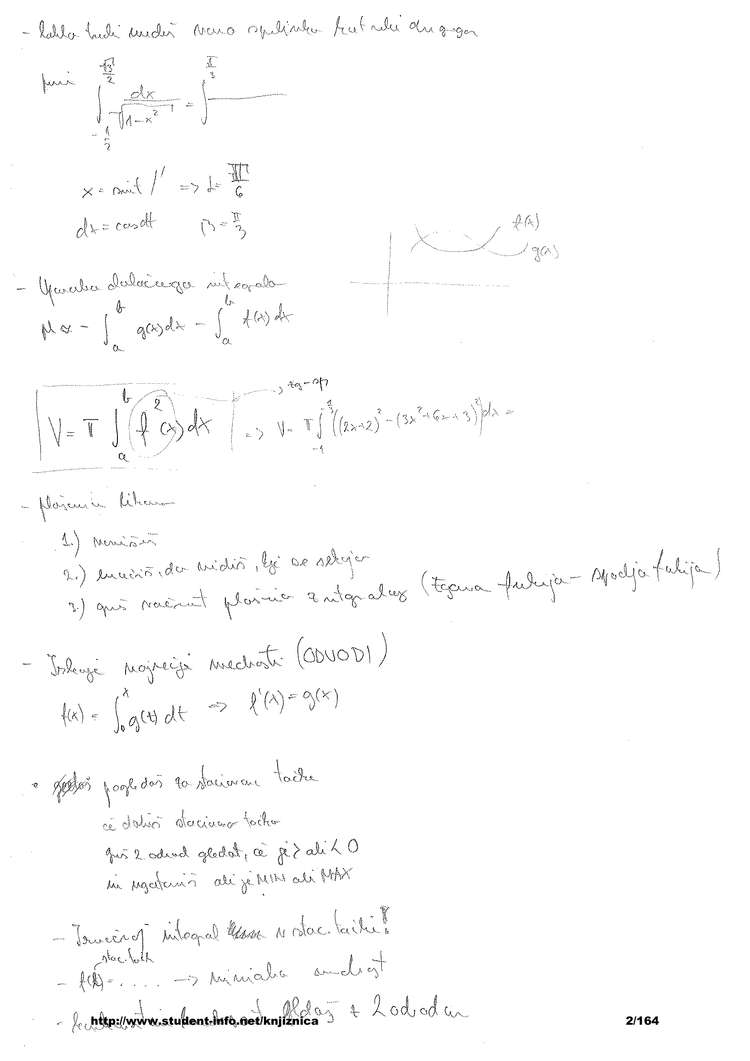 - lahko tudi
∫_{-1/2}^{√3/2} dx/√(1-x²) = ∫^{π/3}
x = sint /' => α = π/6
dx = cosdt β = π/3
f(x)
g(x)
- Uporaba določenega integrala
∫_a^b g(x)dx - ∫_a^b f(x)dx
V = π ∫_a^b f²(x)dx => V = π ∫_{-1} ((2x+2)² - (3x²+6x+3)²)dx =
- ploščina likov
1.) narišeš
2.) da vidiš, kje se sekajo
3.) greš računat ploščino z integralom (zgornja funkcija - spodnja funkcija)
- Iskanje največje vrednosti (ODVODI)
f(x) = ∫_0^x g(t) dt => f'(x) = g(x)
• pogledaš za stacionarne točke
če dobiš stacionarno točko
greš 2 odvod gledat, če je > ali < 0
in ugotoviš ali je MIN ali MAX
- Izračunaj integral v stac. točki!
stac. točk
- f( ) = .... -> minimalna vrednost
- gledaš z 2 odvodom
http://www.student-info.net/knjiznica 2/164